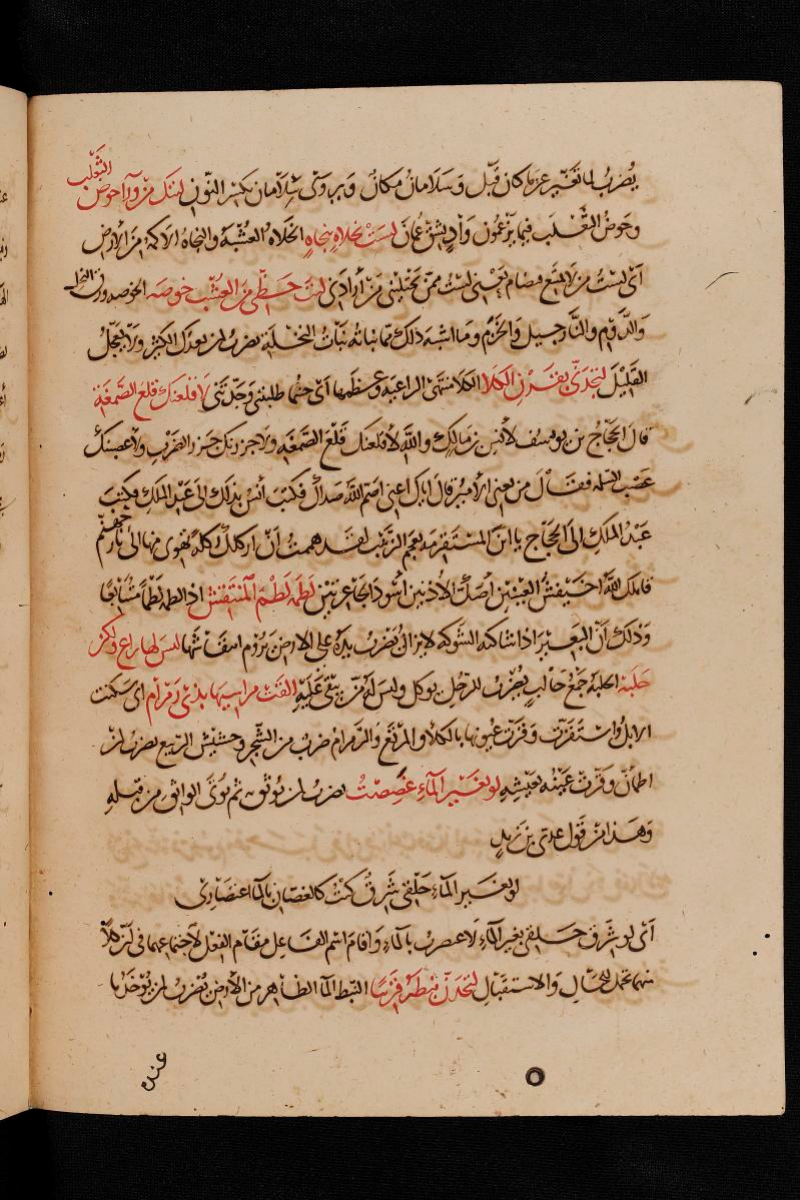 يُضرَبُ لما تَغَيَّر عن ما كان قَبل وَسَلَامانُ مكانٌ ويروى سَلامان بكسر النون ليتك من وراء حوض الثعلب
وحَوضُ الثَّعْلَب فيما يزعُمُون وَادٍ بشقّ عُمَانَ لَسْتُ بخلاةٍ بنجاهٍ الخلاة العُشْبَة والنجاة الاكمة من الارض
اَىْ لستُ مِن لا يمتنع فيُضام يعنى لستُ ممن يختلينى من أرادنى ليت حظّى من العُشب خوصه الخوصه ورق النخل
وَالدَّوْم والنارجيل والخَزَم وما اشبه ذلك مما نباته نبات النخلة يضرب لمن يعدك الكثير ولا يعجل
القليلَ لتجدنّى بقرن الكلا الكلا منتهى الراعية وعظمها اى حيثما طلبتنى وجدتنى لاقلعنّك قلعَ الصَّمْغَة
قال الحجّاجُ بن يوسف لأنس بن مالك والله لأقلعنّك قَلْعَ الصَّمْغَه ولاجزرنك جزر الضرب ولأعصبنك
عَصْب السلمه فقال من يعنى الأمير قال اياك اعنى اصمّ الله صداك فكتب أنس بذلك الى عبد الملك فكتب
عَبْدُ المَلِكِ الى الحجّاج يا ابن المستفرمه بعجم الزبيب لقد هممتُ أنْ اركلك ركلة تهوى منها الى نار جهنّم
قاتلك اللهُ اخيفش العينين اصَكّ الأذنين أسْودَ الجاعرتين لَطَمَه لَطْمَ المُنْتَقِش اذا لطمه لَطْمًا متتابعًا
وَذلك أنّ البَعيرَ اذا شاكته الشوكة لا يزال يَضْرب يده على الارض يَرُوم انتقاشها ليسَ لها راعٍ ولكن
حَلَبَه الحلبة جَمْعُ حَالبٍ يُضْرَبُ للرجل يوكل وليس له من يبقى عَلَيْهِ القَت مراسيها بذى رَمْرَام اى سكنت
الابلُ واستَقَرّت وَقَرّت عيونها بالكلا والمرتع وَالرَمرامُ ضربٌ من الشّجر وحشيش الربيع يضرب لمن
اطمأنّ وقرّت عَيْنُه بعَيشِه لو بغيْر الماء غَصصْتُ يضرب لمن يُوثَق به ثم يُؤتَى الواثق من قبله
وَهَذا من قَول عدىّ بن زيد
لو بغير الماء حلقى شَرِقٌ كنتُ كالغصّان بالماء اعتصارى
اَىْ لو شَرِق حَلقى بغير الماءِ لاعتصرتُ بالماء وَاقام اسْم الفاعل مقام الفعل لاجتماعهما فى أن كلًا
منهما يحمل للحال والاستقبال لتجدنّ نبطه قريبًا النبط الماء الظاهر من الأرض يُضربُ لمن يُؤخَذ ما
عنده